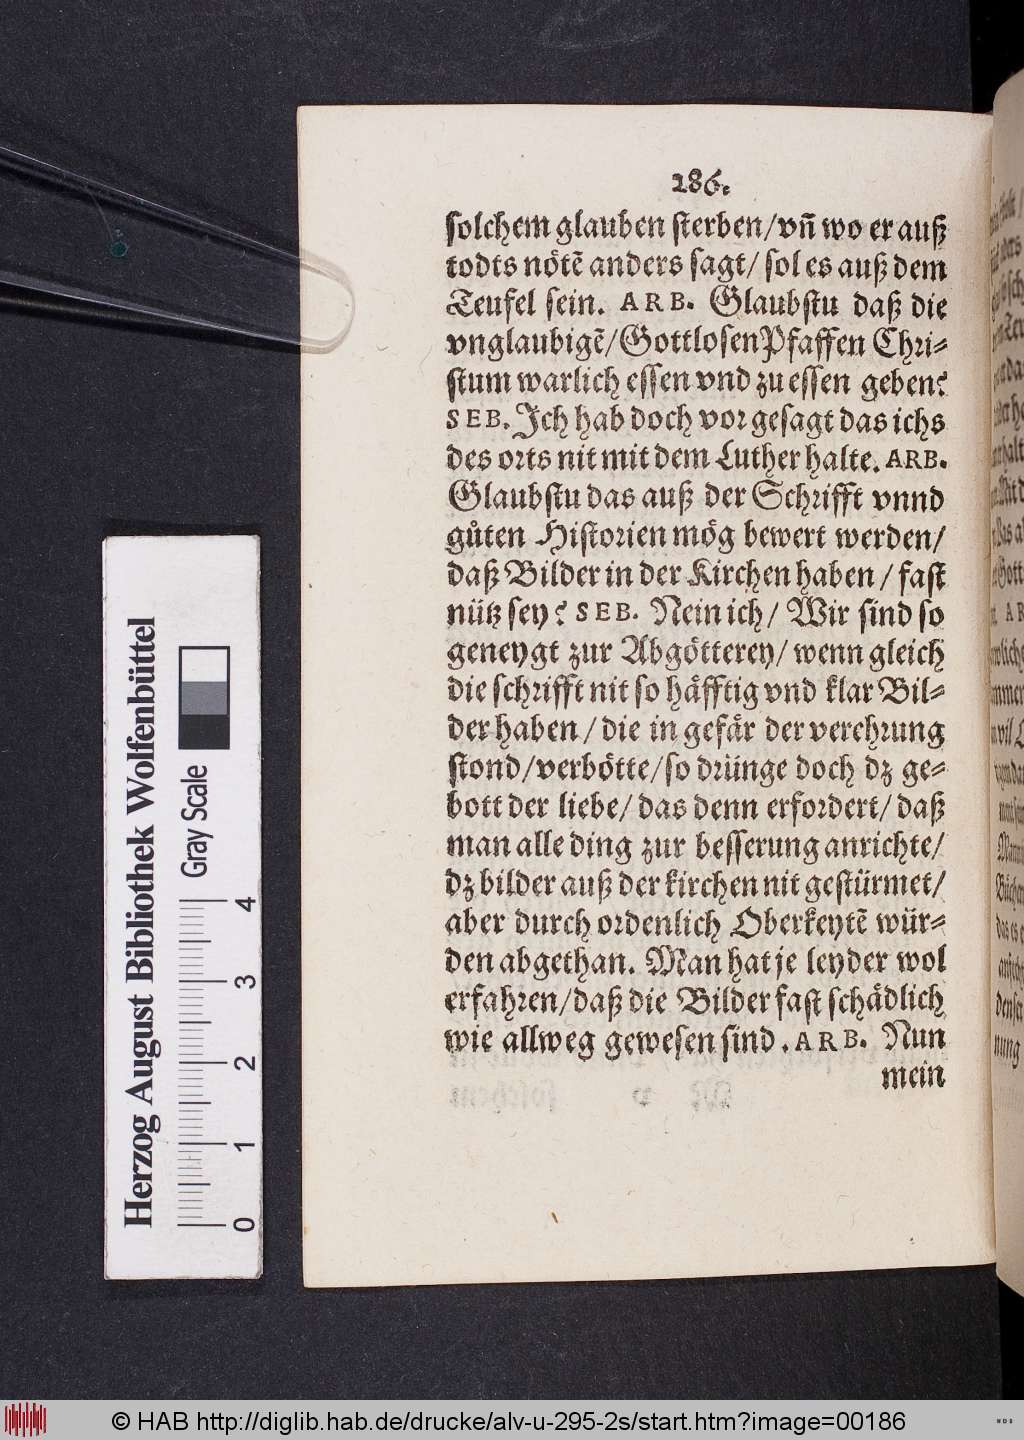 186.
solchem glauben sterben/vñ wo er auß
todts nötẽ anders sagt/ sol es auß dem
Teufel sein. ARB. Glaubstu daß die
vnglaubigẽ/Gottlosen Pfaffen Chri-
stum warlich essen vnd zu essen geben?
SEB. Ich hab doch vor gesagt das ichs
des orts nit mit dem Luther halte. ARB.
Glaubstu das auß der Schrifft vnnd
gůten Historien mög bewert werden/
daß Bilder in der Kirchen haben / fast
nütz sey? SEB. Nein ich/ Wir sind so
geneygt zur Abgötterey/ wenn gleich
die schrifft nit so häfftig vnd klar Bil-
der haben / die in gefär der verehrung
stond/verbötte/so drünge doch dz ge-
bott der liebe/ das denn erfordert/ daß
man alle ding zur besserung anrichte/
dz bilder auß der kirchen nit gestürmet/
aber durch ordenlich Oberkeytẽ wür-
den abgethan. Man hat je leyder wol
erfahren/daß die Bilder fast schädlich
wie allweg gewesen sind. ARB. Nun
mein
Herzog August Bibliothek Wolfenbüttel
Gray Scale
0 1 2 3 4
© HAB http://diglib.hab.de/drucke/alv-u-295-2s/start.htm?image=00186